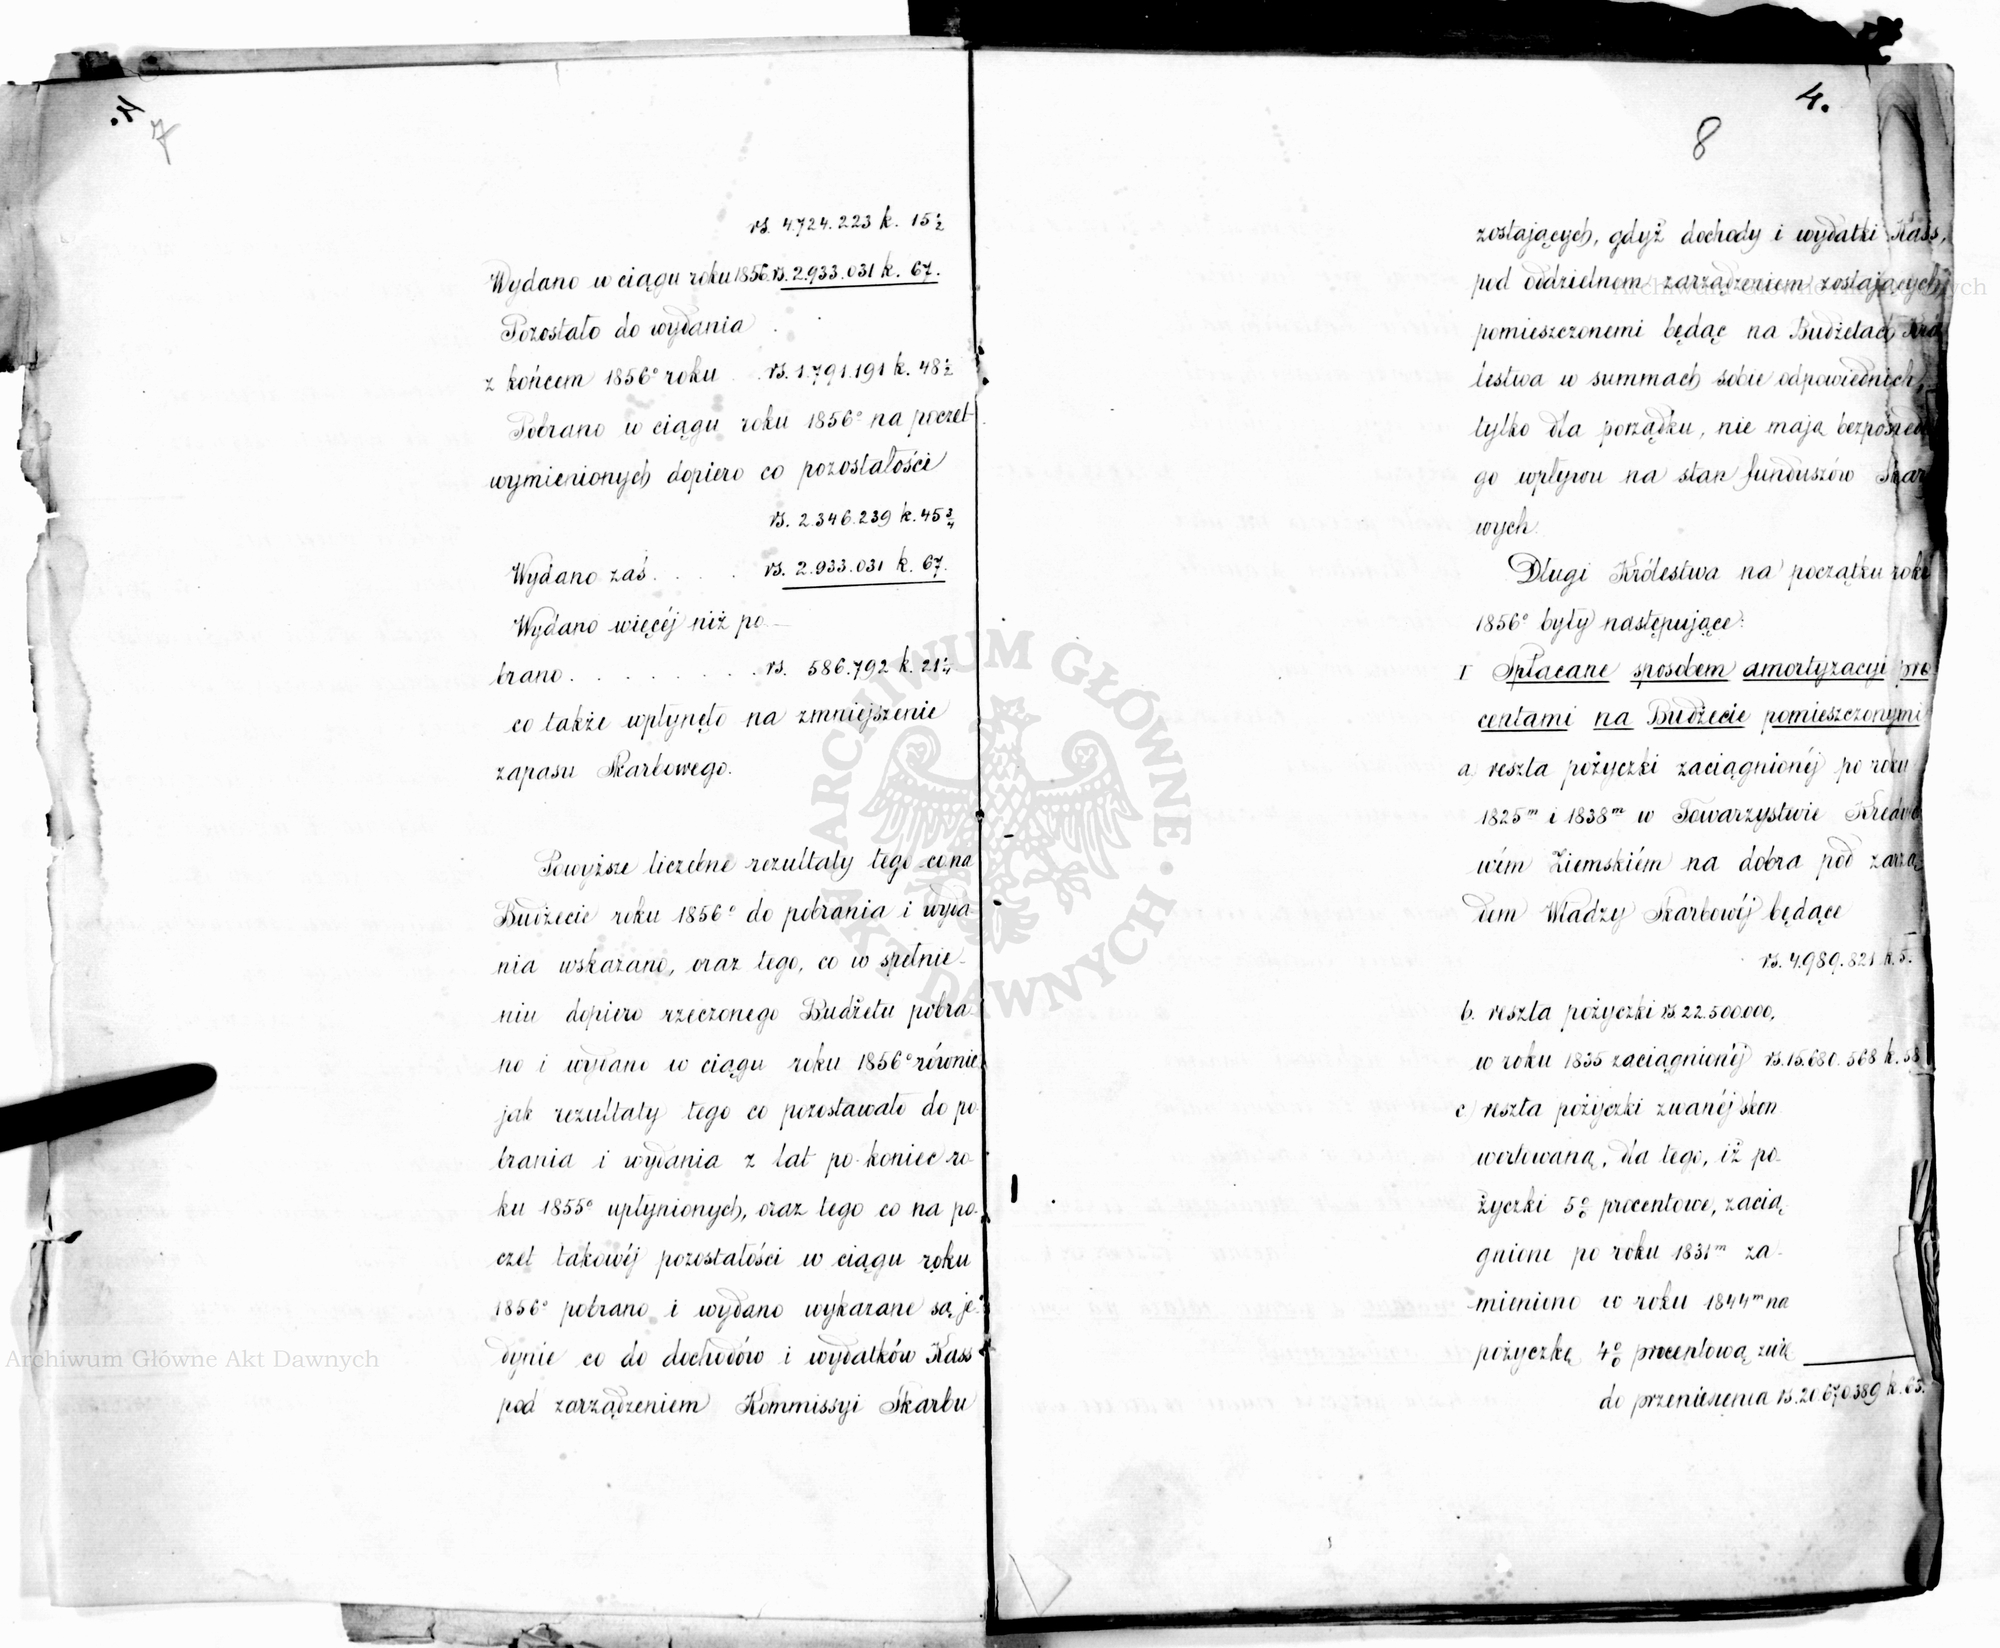 4.
7
rs. 4.724.223 k. 15½
Wydano w ciągu roku 1856. rs. 2.933.031 k. 67.
Pozostało do wydania
z końcem 1856º roku . . rs. 1.791.191 k. 48½
Pobrano w ciągu roku 1856º na poczet
wymienionych dopiero co pozostałości
rs. 2.346.239 k. 45¾
Wydano zaś . . . . rs. 2.933.031 k. 67.
Wydano więcéj niż po-
brano . . . . . . . . . rs. 586.792 k. 21¼
co także wpłynęło na zmniejszenie
zapasu Skarbowego.
Powyższe liczebne rezultaty tego co na
Budżecie roku 1856º do pobrania i wyda-
nia wskazano, oraz tego, co w spełnie-
niu dopiero rzeczonego Budżetu pobra-
no i wydano w ciągu roku 1856º równie
jak rezultaty tego co pozostawało do po-
brania i wydania z lat po koniec ro-
ku 1855º upłynionych, oraz tego co na po-
czet takowéj pozostałości w ciągu roku
1856º pobrano i wydano wykazane są je-
dynie co do dochodów i wydatków Kass
pod zarządzeniem Kommissyi Skarbu
4.
8
zostających, gdyż dochody i wydatki Kass,
pod oddzielnem zarządzeniem zostających
pomieszczonemi będąc na Budżetach Kró
lestwa w summach sobie odpowiednich,
tylko dla porządku, nie mają bezpośred
go wpływu na stan funduszów Skar
wych.
Długi Królestwa na początku roku
1856º były następujące:
I Spłacane sposobem amortyzacyi pro
centami na Budżecie pomieszczonymi
a) reszta pożyczki zaciągnionéj po roku
1825m i 1838m w Towarzystwie Kredyto
wém Ziemskiém na dobra pod zarzą
dem Władzy Skarbowéj będące
rs. 4.989.821 k. 5.
b. reszta pożyczki rs. 22.500.000,
w roku 1835 zaciągnionéj rs. 15.680.568 k. 58
c) reszta pożyczki zwanéj skon
wertowaną, dla tego, iż po-
życzki 5% procentowe, zacią
gnione po roku 1831m za-
mieniono w roku 1844m na
pożyczkę 4% procentową
do przeniesienia rs. 20.670.389 k. 63.
ARCHIWUM GŁÓWNE AKT DAWNYCH
Archiwum Główne Akt Dawnych
Archiwum Główne Akt Dawnych